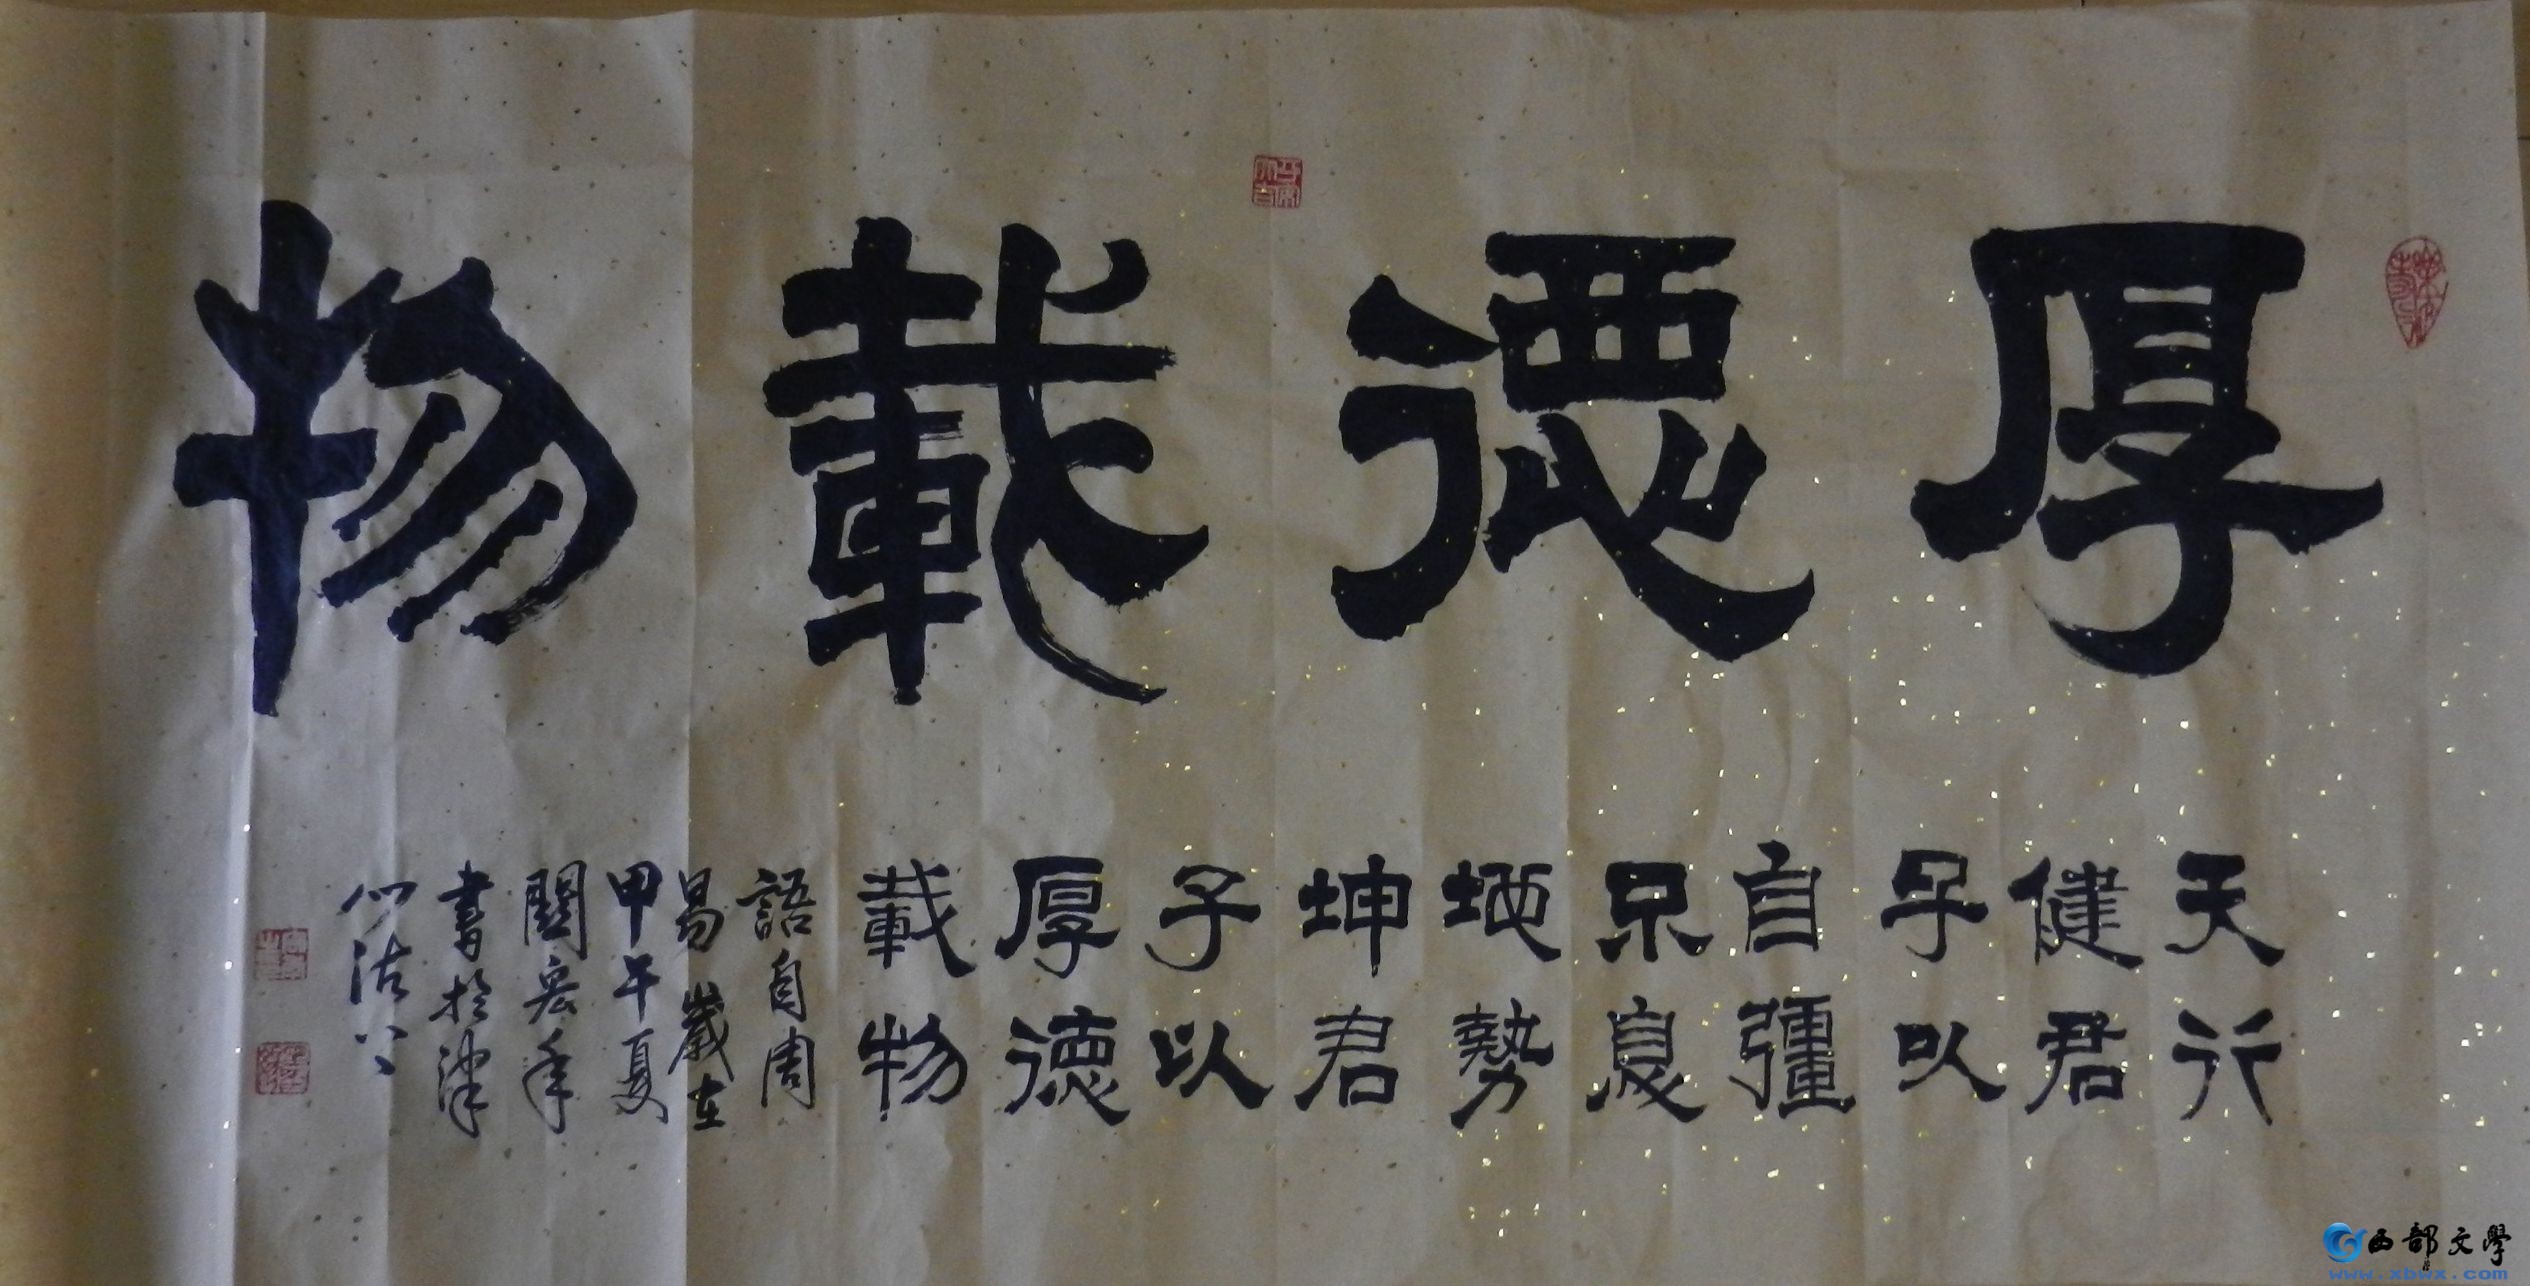 厚德載物
天行
健君
子以
自彊
不息
地勢
坤君
子以
厚德
載物
語自周
易歲在
甲午夏
關宏年
書於津
沽
西部文學
www.xbwx.com